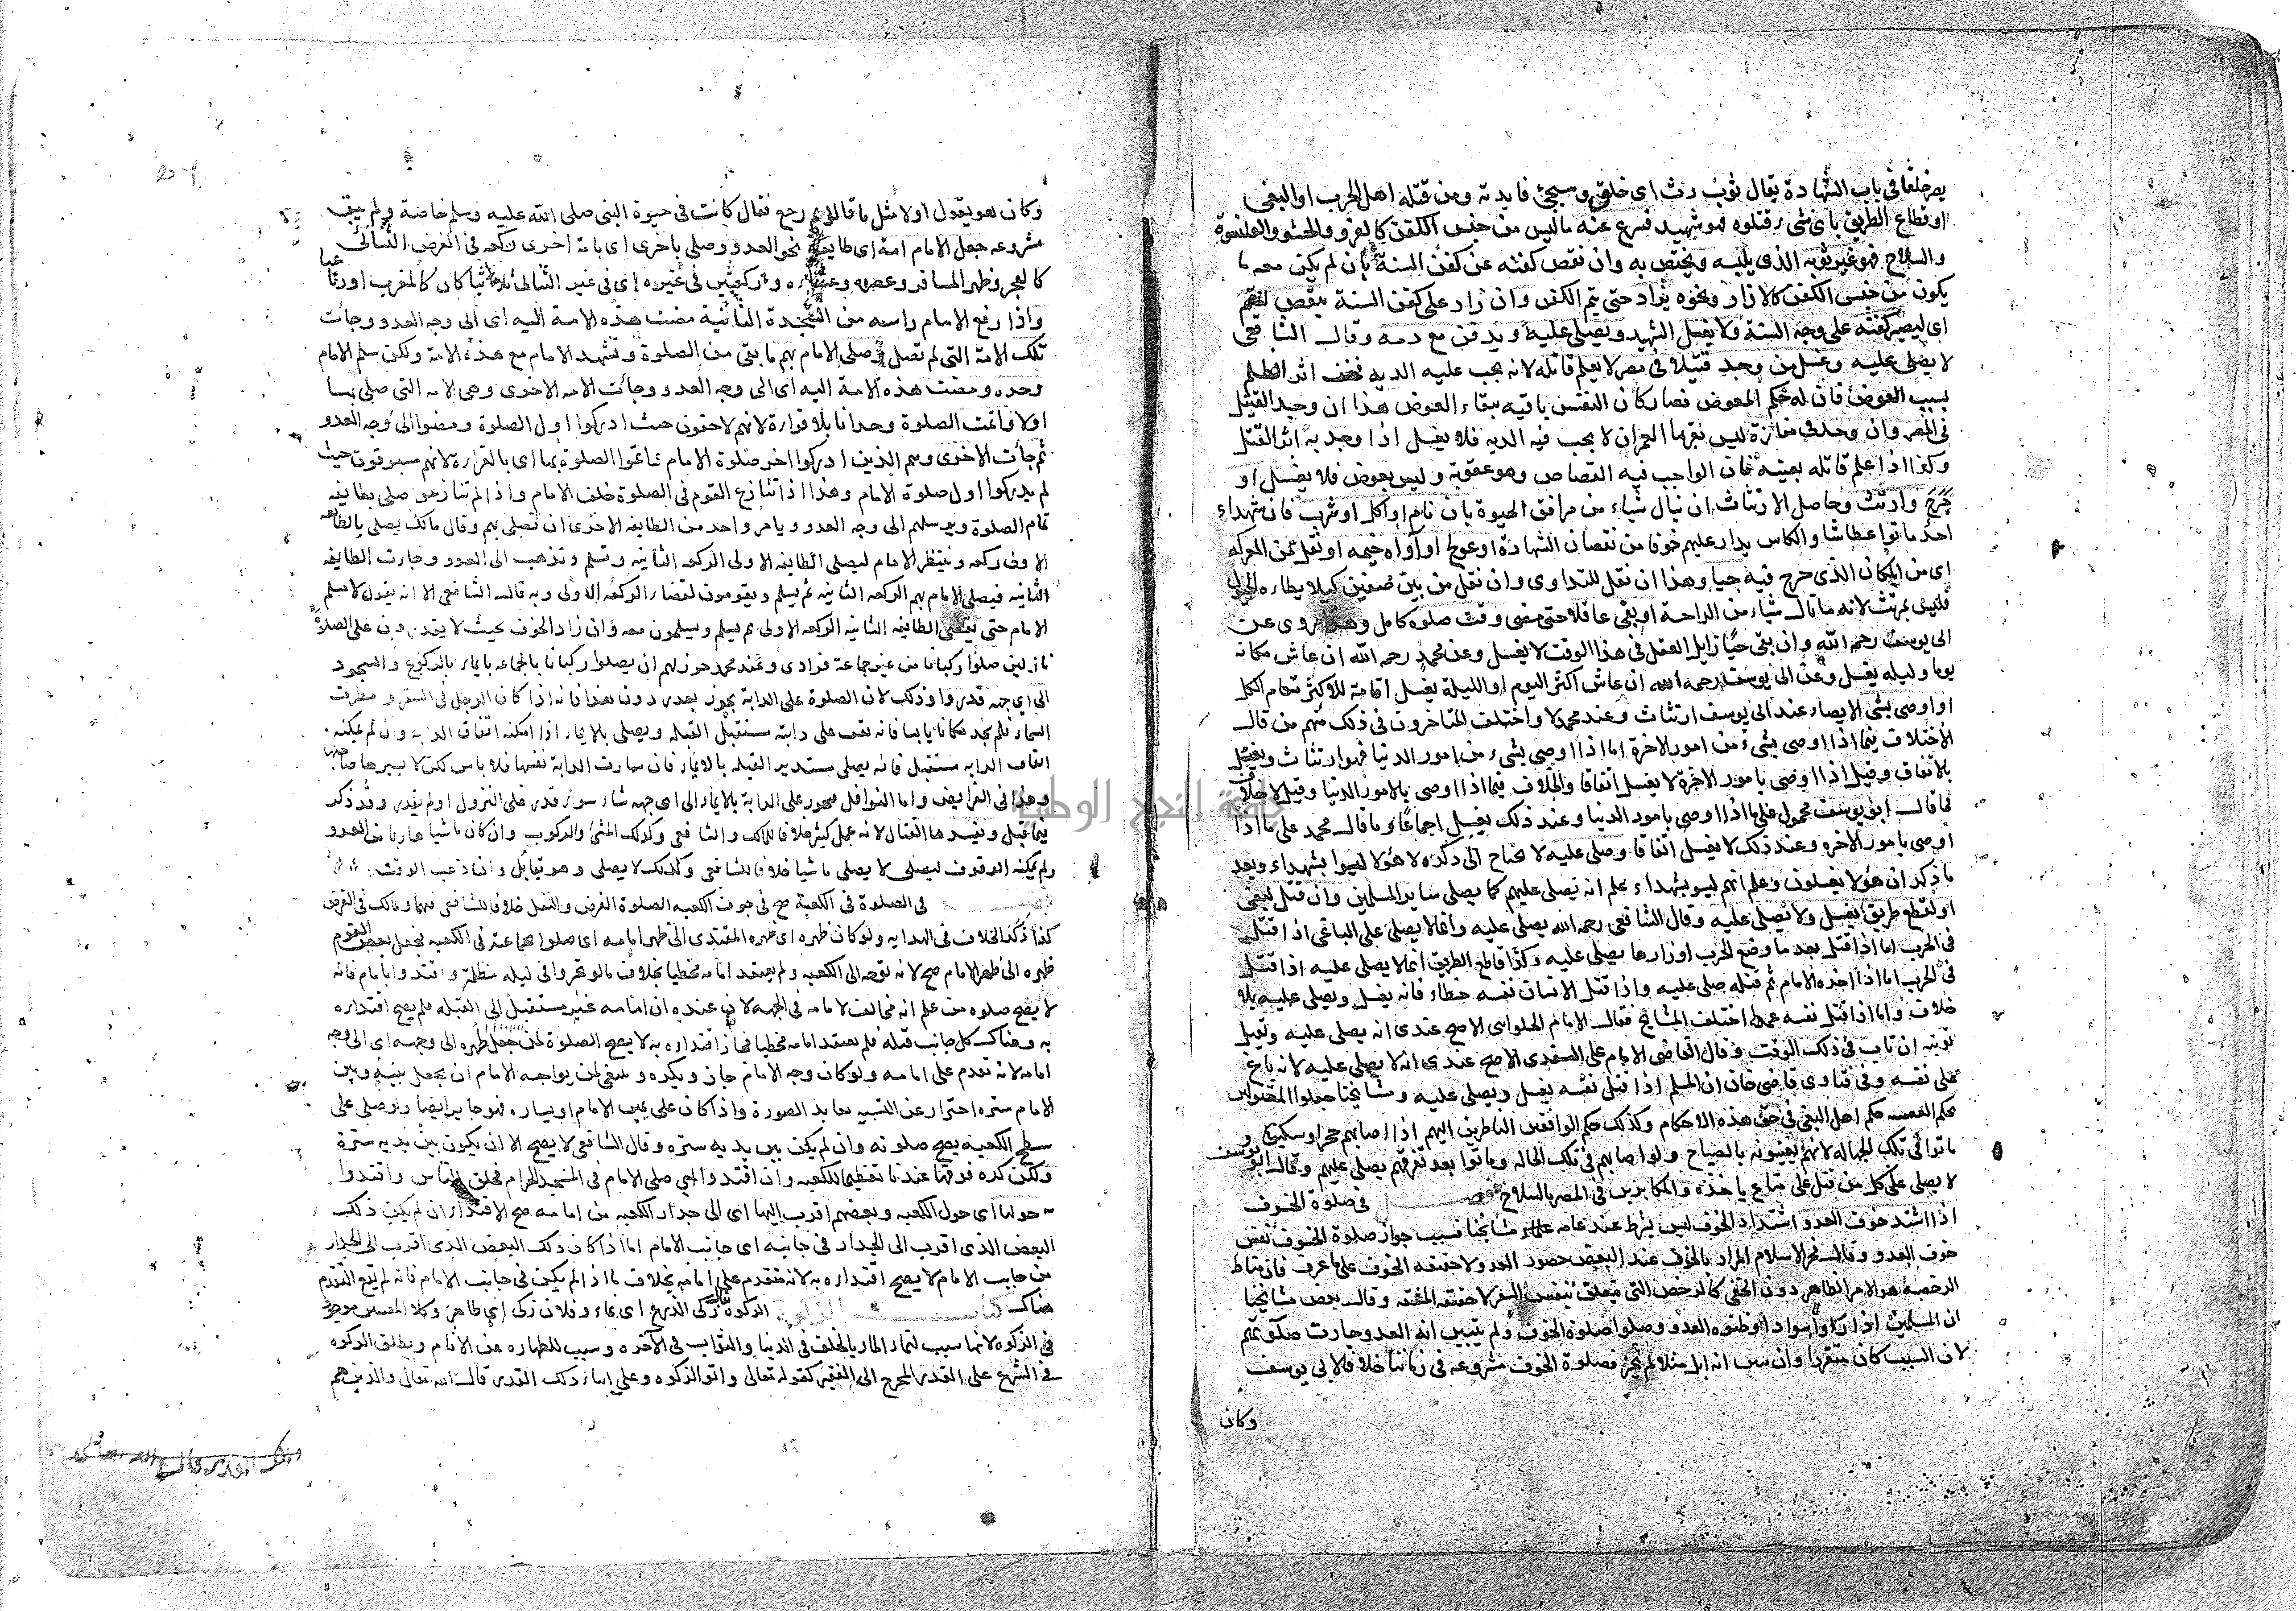 يصر خلقا في باب الشهادة يقال ثوب رث اى خلق وسيجئ فايدته ومن قتله اهل الحرب او البغى
او قطاع الطريق باى شى قتلوه فهو شهيد فينزع عنه ما ليس من جنس الكفن كالفرو والحشو والقلنسوة
والسلاح فهو غير ثوبه الذى يلبسه ويختص به وان نقص كفنه عن كفن السنة بان لم يكن معه ما
يكون من جنس الكفن كالازار ونحوه يزاد حتى يتم الكفن وان زاد على كفن السنة ينقص ليتم
اى ليصير كفنه على وجه السنة ولا يغسل الشهيد ويصلى عليه ويدفن مع دمه وقال الشافعى
لا يصلى عليه وغسل من وجد قتيلا في مصر لا يعلم قاتله لانه يجب عليه الدية فخف اثر الظلم
بسبب العوض فان له حكم المعوض فصار كان النفس باقيه ببقاء العوض هذا ان وجد القتيل
في المصر وان وجد في مفازة ليس بقربها العمران لا يجب فيه الدية فلا يغسل اذا وجد به اثر القتل
وكذا اذا علم قاتله بعينه فان الواجب فيه القصاص وهو عقوبة وليس بعوض فلا يغسل او
جرح وارتث وحاصل الارتثاث ان ينال شياء من مرافق الحيوة بان نام او اكل او شرب فان شهداء
احد ماتوا عطاشا والكاس يدار عليهم خوفا من نقصان الشهادة او عولج او آواه خيمه او نقل من المعركه
اى من المكان الذى جرح فيه حيا وهذا ان نقل للتداوى وان نقل من بين صفين كيلا يطاءه الخيل
فليس بمرتث لانه ما نال شياء من الراحة او بقى عاقلا حتى مضى وقت صلوة كامل وهذا مروى عن
ابى يوسف رحمه الله وان بقى حيا زايل العقل في هذا الوقت لا يغسل وعن محمد رحمه الله ان عاش مكانه
يوما وليله يغسل وعن ابى يوسف رحمه الله ان عاش اكثر اليوم او الليلة يغسل اقامة للاكثر مقام الكل
او اوصى بشى الايصاء عند ابى يوسف ارتثاث وعند محمد لا واختلف المتاخرون في ذلك منهم من قال
الاختلاف فيما اذا اوصى بشىء من امور الاخرة اما اذا اوصى بشىء من امور الدنيا فهو ارتثاث ويغسل
بالاتفاق وقيل اذا اوصى بامور الاخرة لا يغسل اتفاقا والخلاف فيما اذا اوصى بالامور الدنيا وقيل لا خلاف
فما قال ابو يوسف محمول على ما اذا اوصى بامور الدنيا وعند ذلك يغسل اجماعا وما قال محمد على ما اذا
اوصى بامور الاخره وعند ذلك لا يغسل اتفاقا وصلى عليه لا يحتاج الى ذكره لا هؤلا ليسوا بشهداء وبعد
ما ذكر ان هؤلا يغسلون وعلم انهم ليسو بشهداء علم انه يصلى عليهم كما يصلى ساير المسلمين وان قتل لبغى
او لقطع طريق يغسل ولا يصلى عليه وقال الشافعى رحمه الله يصلى عليه وانما لا يصلى على الباغى اذا قتل
في الحرب اما اذا قتل بعد ما وضع الحرب اوزارها يصلى عليه وكذا قاطع الطريق انما لا يصلى عليه اذا قتل
في الحرب اما اذا اخذه الامام ثم قتله صلى عليه واذا قتل الانسان نفسه خطاء فانه يغسل ويصلى عليه بلا
خلاف واما اذا قتل نفسه عمدا اختلف المشايخ فقال الامام الحلوانى الاصح عندى انه يصلى عليه وتقبل
توبته ان تاب في ذلك الوقت وقال القاضى الامام على السغدى الاصح عندى انه لا يصلى عليه لانه باغ
على نفسه وفي فتاوى قاضى خان ان المسلم اذا قتل نفسه يغسل ويصلى عليه ومشايخنا جعلوا المقتولين
بحكم العصبية حكم اهل البغى في حق هذه الاحكام وكذلك حكم الواقفين الناظرين اليهم اذا اصابهم حجر او سكين و
ماتوا في تلك الحاله لانهم يعينونه بالصياح ولو اصابهم في تلك الحاله وماتوا بعد تفرقهم يصلى عليهم وقال ابو يوسف
لا يصلى على كل من قتل على متاع ياخذه والمكابرين في المصر بالسلاح فصل في صلوة الخوف
اذا اشتد خوف العدو اشتداد الخوف ليس بشرط عند عامه علماء مشايخنا فسبب جواز صلوة الخوف نفس
خوف العدو وقال فخر الاسلام المراد بالخوف عند البعض حضور العدو لا حقيقه الخوف على ما عرف فان مناط
الرخصة هو الامر الظاهر دون الخفى كالرخص التى يتعلق بنفس السفر لا حقيقه المشقه وقال بعض مشايخنا
ان المسلمين اذا راوا سوادا وظنوه العدو وصلوا صلوة الخوف ولم يتبين انه العدو جازت صلوتهم
لان السبب كان متقررا وان تبين انه ابل مثلا لم تجز فصلوة الخوف مشروعه في زماننا خلافا لابى يوسف
وكان
وكان هو يقول اولا مثل ما قالا ثم رجع فقال كانت في حيوة النبى صلى الله عليه وسلم خاصة ولم يبق
مشروعه جعل الامام امة اى طايفة نحو العدو وصلى باخرى اى بامة اخرى ركعه في الفرض الثنائى
كالفجر وظهر المسافر وعصره وعشاءه وركعتين في غيره اى في غير الثنائى ثلاثيا كان كالمغرب او رباعيا
واذا رفع الامام راسه من السجدة الثانية مضت هذه الامة اليه اى الى وجه العدو وجأت
تلك الامة التى لم تصل وصلى الامام بهم ما بقى من الصلوة وتشهد الامام مع هذه الامة ولكن سلم الامام
وحده ومضت هذه الامة اليه اى الى وجه العدو وجأت الامه الاخرى وهى الامه التى صلى بها
اولا واتمت الصلوة وحدانا بلا قراءة لانهم لاحقون حيث ادركوا اول الصلوة ومضوا الى وجه العدو
ثم جأت الاخرى وهم الذين ادركوا اخر صلوة الامام فاتموا الصلوة بها اى بالقراءة لانهم مسبوقون حيث
لم يدركوا اول صلوة الامام وهذا اذا تنازع القوم في الصلوة خلف الامام واذا لم تنازعوا صلى بطايفه
تمام الصلوة ويرسلهم الى وجه العدو ويامر واحد من الطايفه الاخرى ان تصلى بهم وقال مالك يصلى بالطايفه
الاولى ركعه وينتظر الامام ليصلى الطايفه الاولى الركعه الثانيه وتسلم وتذهب الى العدو وجاءت الطايفه
الثانيه فيصلى الامام بهم الركعه الثانيه ثم يسلم ويقومون لقضاء الركعه الاولى وبه قال الشافعى الا انه يقول لا يسلم
الامام حتى يقضى الطايفه الثانيه الركعه الاولى ثم يسلم ويسلمون معه وان زاد الخوف بحيث لا يقدرون على الصلاة
نازلين صلوا ركبانا من غير جماعة فرادى وعند محمد جوز لهم ان يصلوا ركبانا بالجماعه بايماء بالركوع والسجود
الى اى جهه قدروا وذلك لان الصلوة على الدابة يجوز بعذر دون هذا فانه اذا كان الرجل في السفر ومطرت
السماء فلم يجد مكانا يابسا فانه يقف على دابته مستقبل القبله ويصلى بالايماء اذا امكنه ايقاف الدابه وان لم يمكنه
ايقاف الدابه مستقبل فانه يصلى مستدبر القبله بالايماء فان سارت الدابة نفسها فلا باس لكن لا يسيرها صاحبها
وهذا في الفرايض واما النوافل فيجوز على الدابة بالايماء الى اى جهه شاء سواء قدر على النزول او لم يقدر وقد ذكر
فيما قبل ويفسدها القتال لانه عمل كثير خلافا لمالك والشافعى وكذلك المشى والركوب وان كان ماشيا هاربا من العدو
ولم يمكنه الوقوف ليصلى لا يصلى ماشيا خلافا للشافعى وكذلك لا يصلى وهو يقابل وان ذهب الوقت
في الصلوة في الكعبة صح في جوف الكعبه الصلوة الفرض والنفل خلافا للشافعى فيهما ومالك في الفرض
كذا ذكر الخلاف في الهدايه ولو كان ظهره اى ظهره المقتدى الى ظهر امامه اى صلوا جماعة في الكعبه فجعل بعض القوم
ظهره الى ظهر الامام صح لانه توجه الى الكعبه ولم يعتقد امامه مخطيا بخلاف ما لو تحروا في ليله مظلمة واقتدوا بامام فانه
لا يصح صلوه من علم انه مخالف لامامه في الجهه لان عنده ان امامه غير مستقبل الى القبله فلم يصح اقتداءه
به وهناك كل جانب قبلة فلم يعتقد امامه مخطيا فجاز اقتداءه به لا يصح الصلوة لمن جعل ظهره الى وجهه اى الى وجه
امامه لانه تقدم على امامه ولو كان وجه الامام جاز ويكره وينبغى لمن يواجه الامام ان يجعل بينه وبين
الامام سترة احترازا عن التشبيه بعابد الصورة واذا كان على يمين الامام او يساره فهو جايز ايضا ولو صلى على
سطح الكعبة يصح صلوته وان لم يكن بين يديه سترة وقال الشافعى لا يصح الا ان يكون بين يديه سترة
ولكن كره فوقها عندنا تعظيما للكعبه وان اقتدوا اى صلى الامام في المسجد الحرام فحلق الناس واقتدوا
حولها اى حول الكعبه وبعضهم اقرب اليها اى الى جدار الكعبه من امامه صح الاقتداء ان لم يكن ذلك
البعض الذى اقرب الى الجدار في جانبه اى جانب الامام اما اذا كان ذلك البعض الذى اقرب الى الجدار
من جانب الامام لا يصح اقتداءه به لانه متقدم على امامه بخلاف ما اذا لم يكن في جانب الامام فانه لم يقع التقدم
هناك كتاب الزكوة الزكوة يقال زكى الزرع اى نماء وفلان زكى اى طاهر وكلا المعنيين موجود
في الزكوة لانها سبب لنماء المال بالخلف في الدنيا والثواب في الآخره وسبب للطهاره عن الاثام ويطلق الزكوه
في الشرع على القدر المخرج الى الفقير كقوله تعالى واتو الزكوه وعلى ايتاء ذلك القدر قال الله تعالى والذين هم